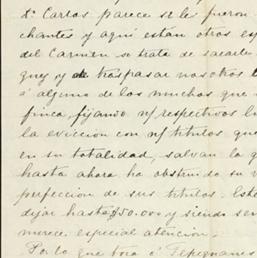 Dn. Carlos parece se le fueron
chantes y aqui están otros esp
del Carmen se trata de sacarle
guey y de traspasar nosotros
á alguno de los muchos que
finca, fijando n/ respectivos l
la eviccion con n/ titulos que
en su totalidad, salvan la q
hasta ahora ha obstruido su v
perfeccion de sus titulos. Este
dejar hasta $50.000 y siendo se
merece especial atencion.
Por lo que toca á Tepegnanes